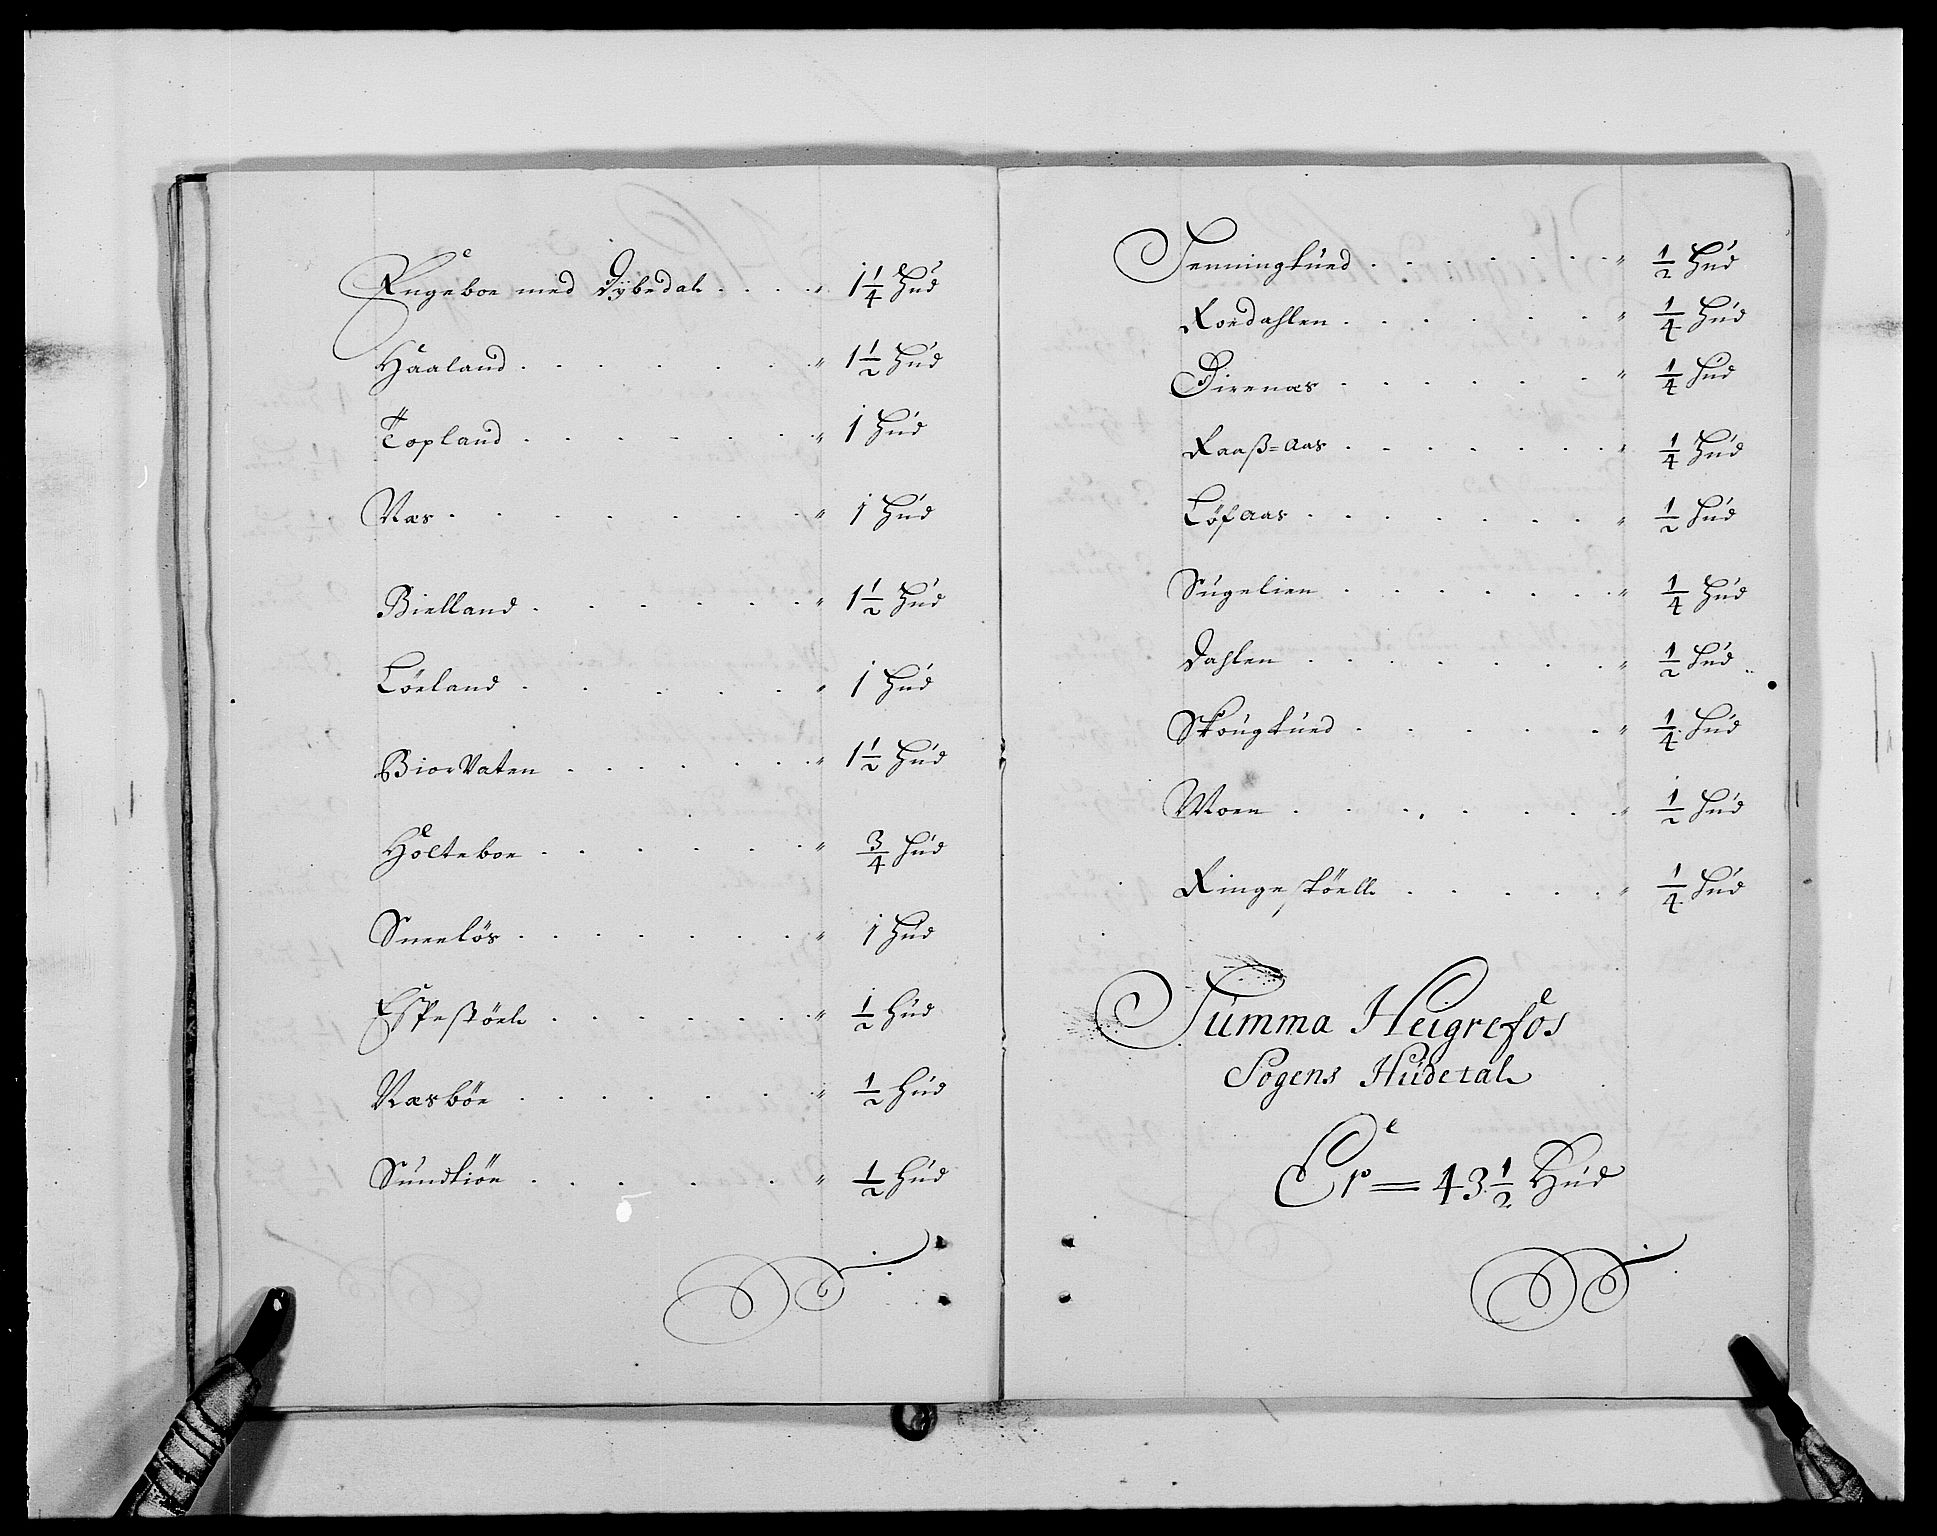 Engeboe med Dybedal . . . . " 1 1/4 Hud
Haaland . . . . . . . " 1 1/2 Hud
Topland . . . . . . . " 1 Hud
Næs . . . . . . . . " 1 Hud
Bielland . . . . . . . " 1 1/2 Hud
Löeland . . . . . . " 1 Hud
BiorVaten . . . . . . . " 1 1/2 Hud
Holteboe . . . . . . " 3/4 Hud
Sneelös . . . . . . . " 1 Hud
Espestöel . . . . . . . " 1/2 Hud
Næsböe . . . . . . . " 1/2 Hud
Sundtiön . . . . . . " 1/2 Hud
Tenningkued . . . . . . . " 1/2 Hud
Roedahlen . . . . . . " 1/4 Hud
Direnæs . . . . . . " 1/4 Hud
Raaß=aas . . . . . . . " 1/4 Hud
Løfaas . . . . . . . " 1/2 Hud
Sugelien . . . . . . . " 1/4 Hud
Dahlen . . . . . . . " 1/2 Hud
Skougkued . . . . . . " 1/4 Hud
Moen . . . . . . . " 1/2 Hud
Ringesköell . . . . . " 1/4 Hud
Summa Heigrefos
Sogens Hudetal
Er = 43 1/2 Hud